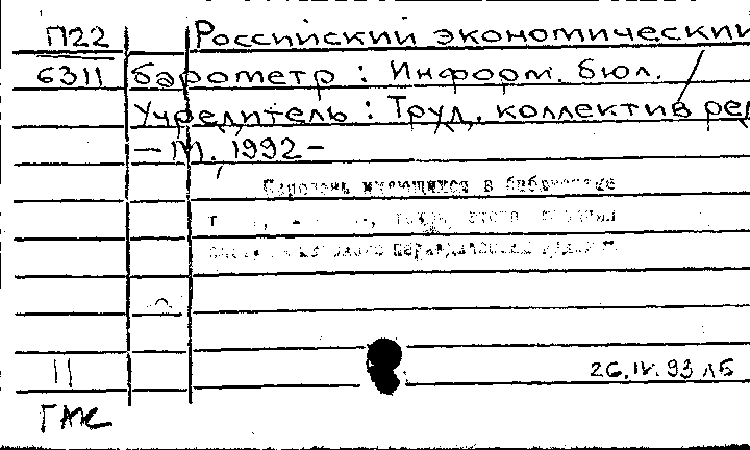 П22 Российский экономический
6311 барометр : Информ. бюл. /
Учредитель : Труд. коллектив ред
— М., 1992 –
имеющихся в библиотеке
11 26.IV.93 ЛБ